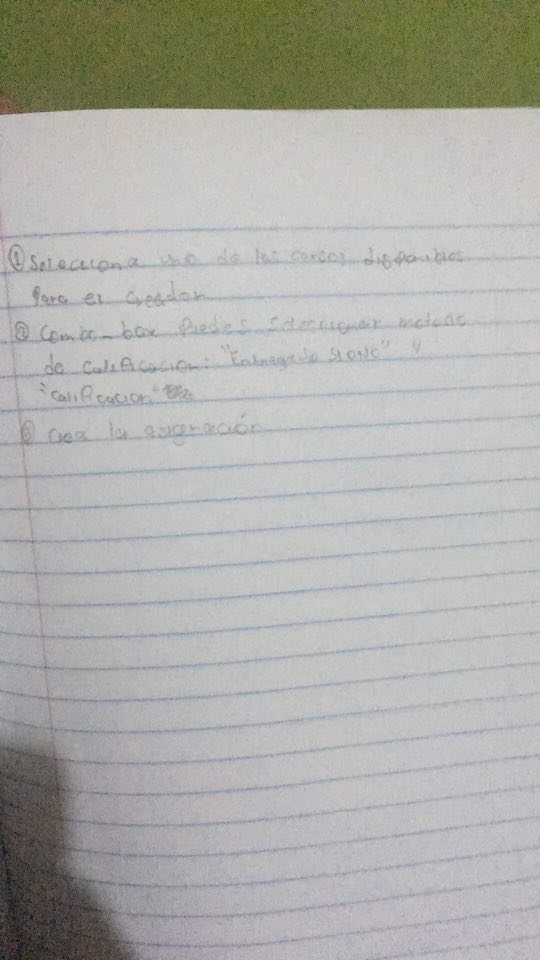 ① Selecciona uno de los cursos disponibles
para el creador
② Combo-box Puedes seleccionar metodo
de calificacion: "Entregado SI o NO" y
"calificacion"
③ Crea la asignación